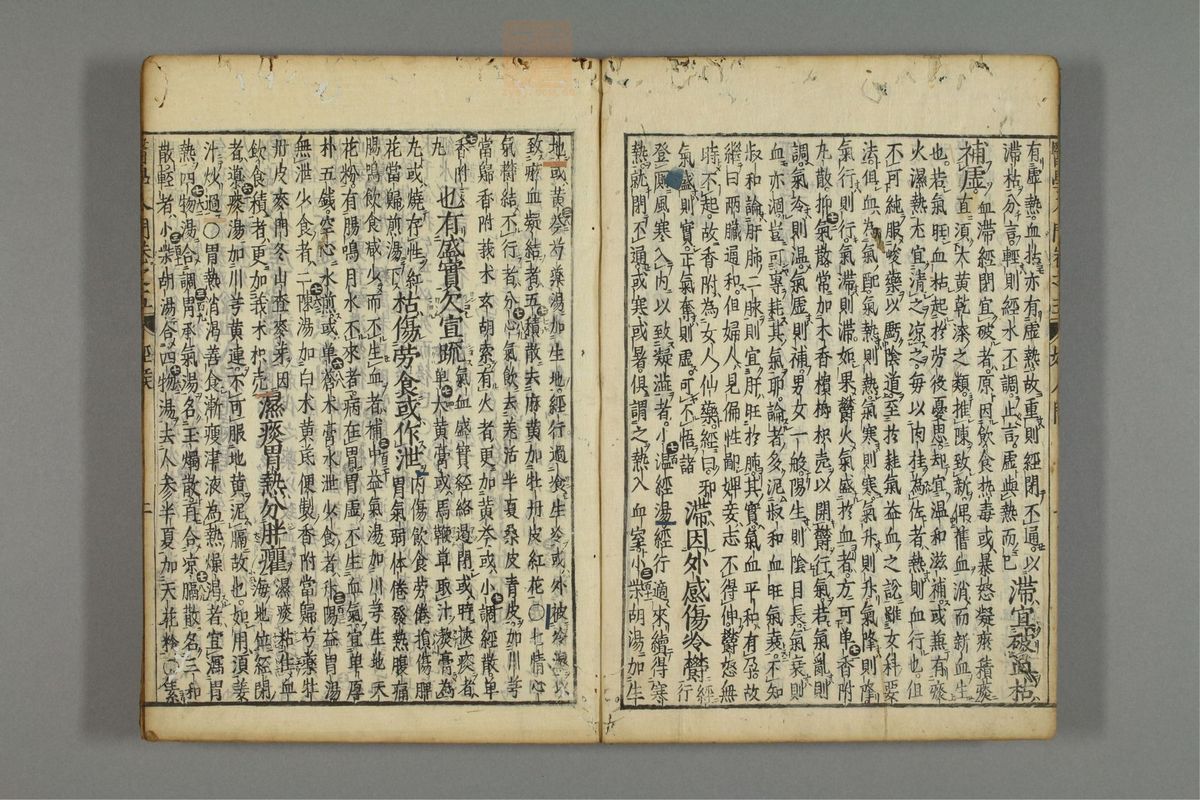 有虛熱血枯亦有虛熱故重則經閉不通以
滯枯分言輕則經水不調止言虛與熱而已 滯宜破血枯
補虛 血滯經閉宜破者原因飲食熱毒或暴怒凝瘀積痰
直須大黃乾漆之類推陳致新俾舊血消而新血生
也若氣旺血枯起於勞役憂思却宜溫和滋補或兼有痰
火濕熱尤宜清之凉之每以肉桂為佐者熱則血行也但
不可純服峻藥以虧陰道至於耗氣益血之說雖女科要
法但血為氣配氣熱則熱氣寒則寒氣升則升氣降則降
氣行則行氣滯則滯如果鬱火氣盛於血者方可單香附
丸散抑氣散常加木香檳榔枳殼以開鬱行氣若氣亂則
調氣冷則溫氣虛則補男女一般陽生則陰自長氣衰則
血亦涸豈可專耗其氣耶論者多泥叔和血旺氣衰不知
叔和論肝肺一脉則宜肝旺於肺其實氣血平和有孕故
繼曰兩臟通和但婦人見偏性鄙婢妾志不得伸鬱怒無
時不起故香附為女人仙藥經曰和
氣盛則實正氣奪則虛可不悟諸 滯因外感傷冷鬱 經行
登厠風寒入內以致凝滯者小溫經湯經行適來續得寒
熱就閉不通或寒或暑俱謂之熱入血室小柴胡湯加生
地或黃葵芍藥湯加生地經行過食生冷或外被冷濕以
致瘀血凝結者五積散去麻黃加牡丹皮紅花〇七情心
氣鬱結不行者分心氣飲去羌活半夏桑皮青皮加川芎
當歸香附莪术玄胡索有火者更加黃芩或小調經散單
香附丸 也有盛實欠宣疏 氣血盛實經絡遏閉或時挾痰者
單大黃膏或馬鞭草取汁熬膏為
丸或燒存性紅
花當歸煎湯下 枯傷勞食或作泄 內傷飲食勞倦損傷脾
胃氣弱體倦發熱腹痛
腸鳴飲食減少而不生血者補中益氣湯加川芎生地天
花粉有腸鳴月水不來者病在胃胃虛不生血氣宜單厚
朴五錢空心水煎或單蒼术膏水泄少食者升陽益胃湯
無泄少食者二陳湯加白术黃芪便製香附當歸芍藥牡
丹皮麥門冬山查麥芽因
飲食積者更加莪术枳壳 濕痰胃熱分胖癯 濕痰粘住血
海地位經閉
者導痰湯加川芎黃連不可服地黃泥膈故也如用須姜
汁炒過〇胃熱消渴善食漸瘦津液為熱燥渴者宜瀉胃
熱四物湯合調胃承氣湯名玉燭散合凉膈散名三和
散輕者小柴胡湯合四物湯去人參半夏加天花粉〇素